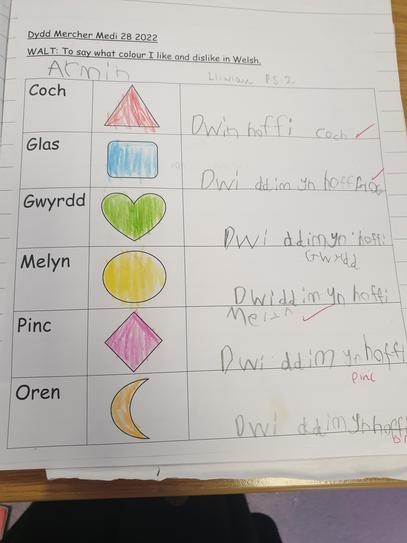 Dydd Mercher Medi 28 2022
WALT: To say what colour I like and dislike in Welsh.
Armin Lliwiau PS.2
Coch
Dwin hoffi coch
Glas
Dwi ddim yn hoff
Gwyrdd
Dwi ddim yn hoffi
Gwrdd
Melyn
Dwi ddim yn hoffi
Melyn
Pinc
Dwi ddim yn hoffi
pinc
Oren
Dwi ddim yn hoffi